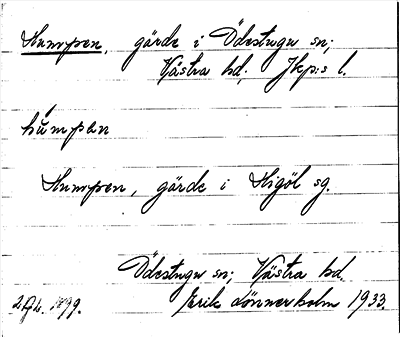 Humpen, gärde i Ödestugu sn;
Västra hd; Jkp:s l.
húmpen
Humpen, gärde i Stigöl sg.
Ödestugu sn; Västra hd.
Erik Lönnerholm 1933.